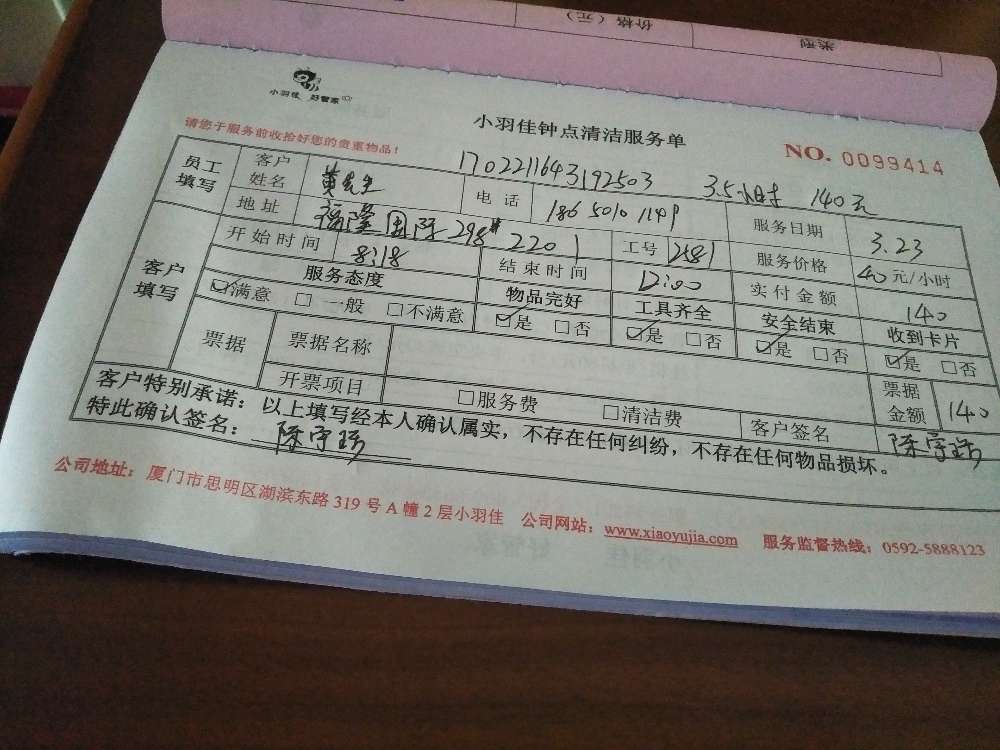 类型
价格（元）
小羽佳 好管家
小羽佳钟点清洁服务单
请您于服务前收拾好您的贵重物品！
NO. 0099414
1702211643192503 3.5小时 140元
员工填写 客户姓名 黄先生 电话 186 5010 1149 服务日期 3.23
地址 福隆国际298# 2201 工号 2581 服务价格 40元/小时
客户填写 开始时间 8:18 结束时间 12:00 实付金额 140
服务态度 物品完好 工具齐全 安全结束 收到卡片
☑满意 □一般 □不满意 ☑是 □否 ☑是 □否 ☑是 □否 ☑是 □否
票据 票据名称 票据金额 140
开票项目 □服务费 □清洁费 客户签名
客户特别承诺：以上填写经本人确认属实，不存在任何纠纷，不存在任何物品损坏。
特此确认签名：
公司地址：厦门市思明区湖滨东路319号A幢2层小羽佳 公司网站：www.xiaoyujia.com 服务监督热线：0592-5888123